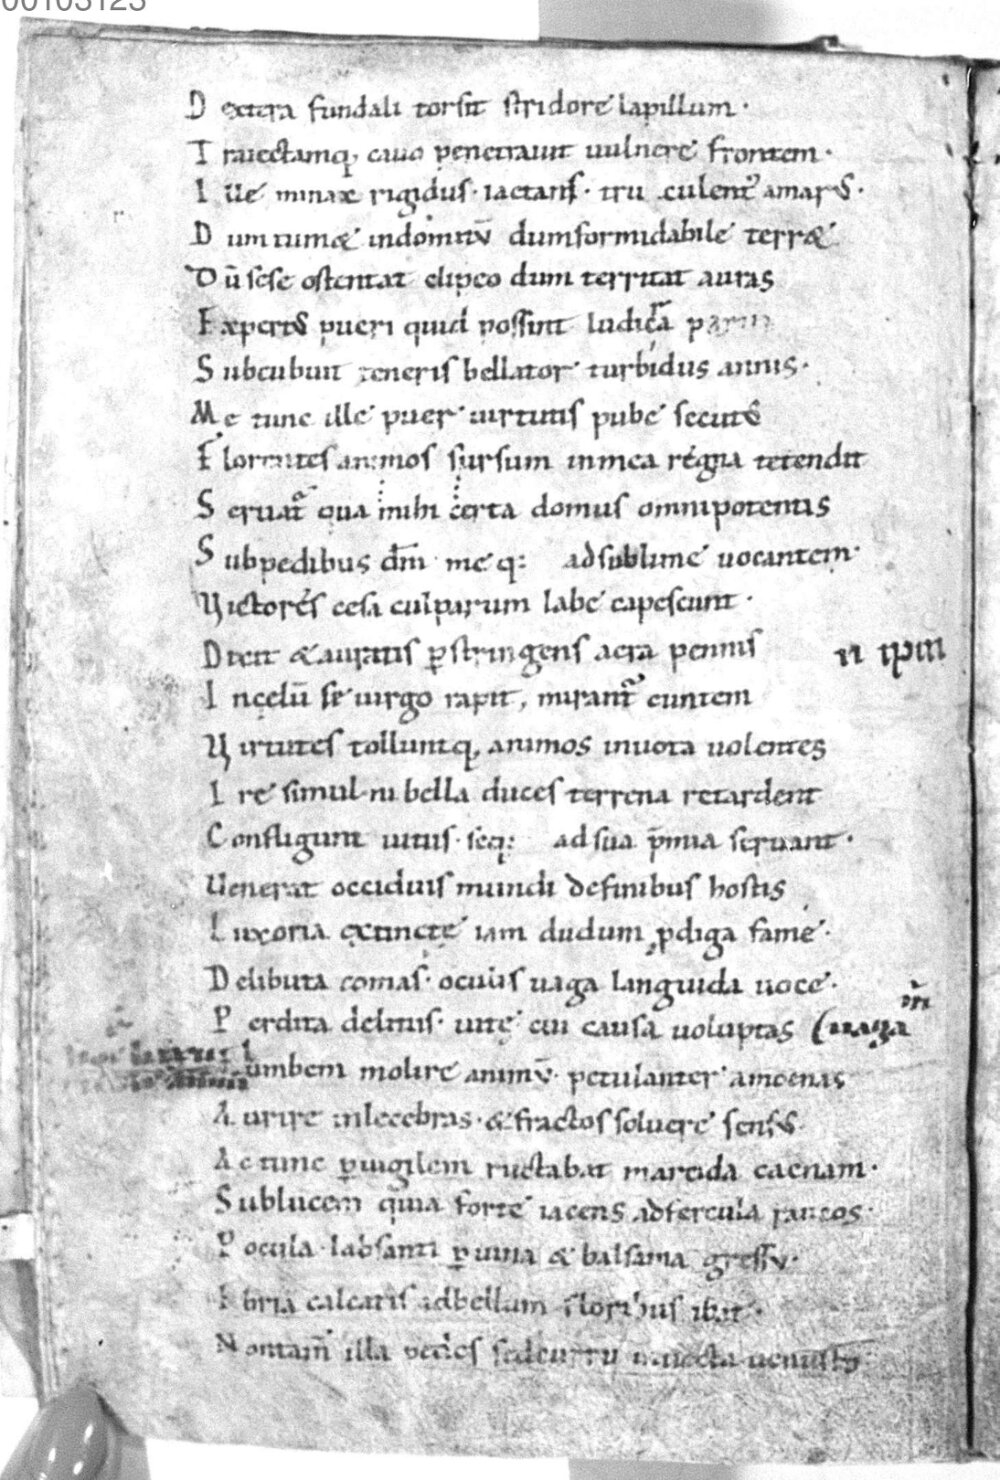 00103123
D extera fundali torsit stridore lapillum·
T raiectamq, caua penetrauit uulnere frontem·
I lle minax rigidus· iactans· tru culent᾽ amarꝰ·
D um tumę indomitū dum formidabile terræ
Dū sese ostentat clipeo dum territat auras
Expertꝰ pueri quid possint ludicra
S ubcubuit teneris bellator turbidus annis·
Me tunc ille puer uirtutis pube secutꝰ
Florentes animos sursum in mea regna tetendit
S eruat᾽ qua mihi certa domus omnipotentis
S ub pedibus dn̄i meq: ad sublime uocantem·
Victores cesa culparum labe capescunt·
Dixit & auratis ꝑstringens aera pennis
I n cęlū se uirgo rapit, mirant᾽ euntem
Virtutes tolluntq, animos in uota uolentes
I re simul ni bella duces terrena retardent
Confligunt uitiis· seq: ad sua p̄mia seruant·
Uenerat occiduis mundi de finibus hostis
Luxoria extincte iam dudum ꝓdiga fame·
Delibuta comas· oculis uaga languida uoce·
Perdita delitiis· uitę cui causa uoluptas
umbem mollire animū· petulanter amoenas
A urire inlecebras· & fractos soluere sensꝰ·
Ac tunc ꝑuigilem ructabat marcida caenam·
Sub lucem quia forte iacens ad fercula raucos·
Pocula· labsanti ꝑ uina & balsama gressu·
Ebria calcatis ad bellum floribus ibat·
Non tam̄ illa pedes sed curru inuecta uenusto